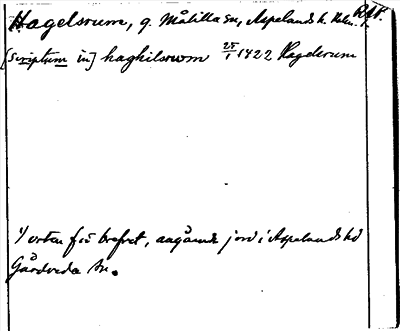 Hagelsrum, g. Målilla sn, Aspelands h. Kalm. RAP.
[scriptum in] haghilsrwm 25/1 1422 Hagelsrum
1) orten för brefvet, angående jord i Aspelands hd
Gårdveda sn.